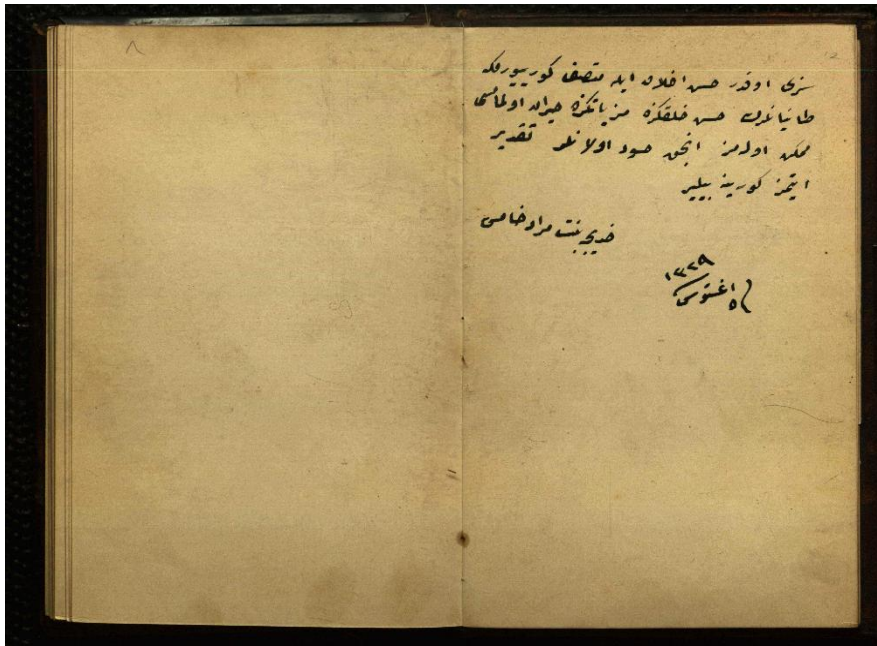 سزى اوقدر حسن اخلاق ايله متصف كوريیورمكه
طانيانلرك حسن خلقكزه مزياتكزه حيران اولمامسى
ممكن اولهمز انجق حسود اولانلر تقدير
ايتمز كورينه بيلير
خديجه بنت مراد خامس
١٣٢٩
١٥ اغستوس